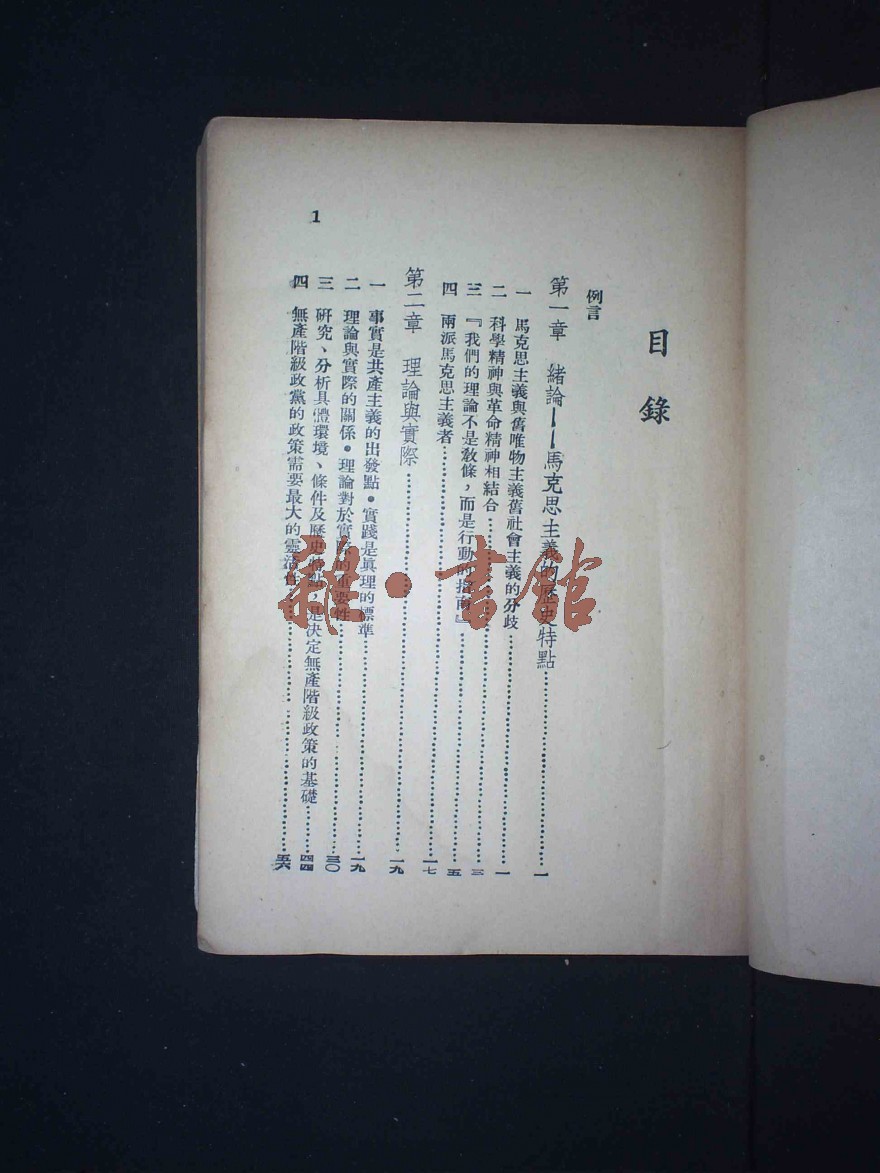 目錄
例言
第一章　緒論——馬克思主義的歷史特點……一
一　馬克思主義與舊唯物主義舊社會主義的分歧……一
二　科學精神與革命精神相結合……三
三　『我們的理論不是敎條，而是行動的指南』……五
四　兩派馬克思主義者……一七
第二章　理論與實際……一九
一　事實是共產主義的出發點。實踐是眞理的標準……一九
二　理論與實際的關係。理論對於實際的重要性……三〇
三　硏究、分析具體環境、條件及歷史特點，是决定無產階級政策的基礎……四四
四　無產階級政黨的政策需要最大的靈活性……五六
1
雜·書館